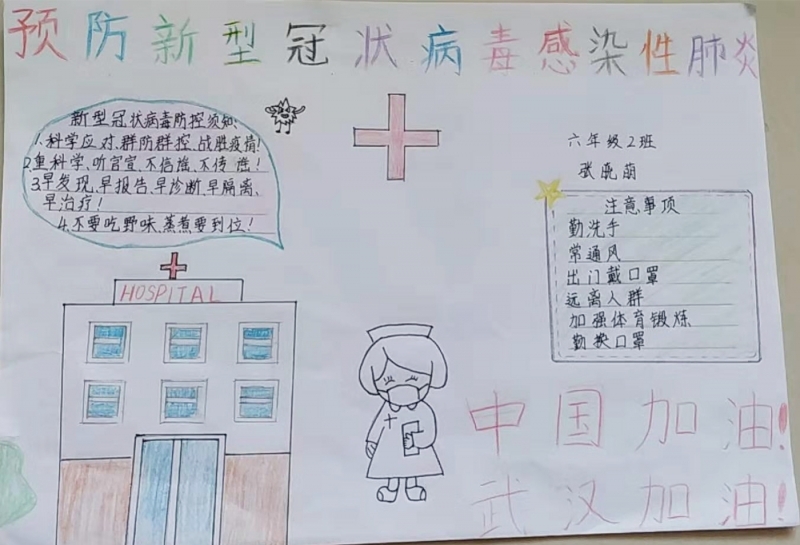 预防新型冠状病毒感染性肺炎
新型冠状病毒防控须知:
1.科学应对、群防群控、战胜疫情!
2.重科学、听官宣、不信谣、不传谣!
3.早发现、早报告、早诊断、早隔离、
早治疗!
4.不要吃野味、蒸煮要到位!
HOSPITAL
六年级2班
注意事项
勤洗手
常通风
出门戴口罩
远离人群
加强体育锻炼
勤换口罩
中国加油!
武汉加油!